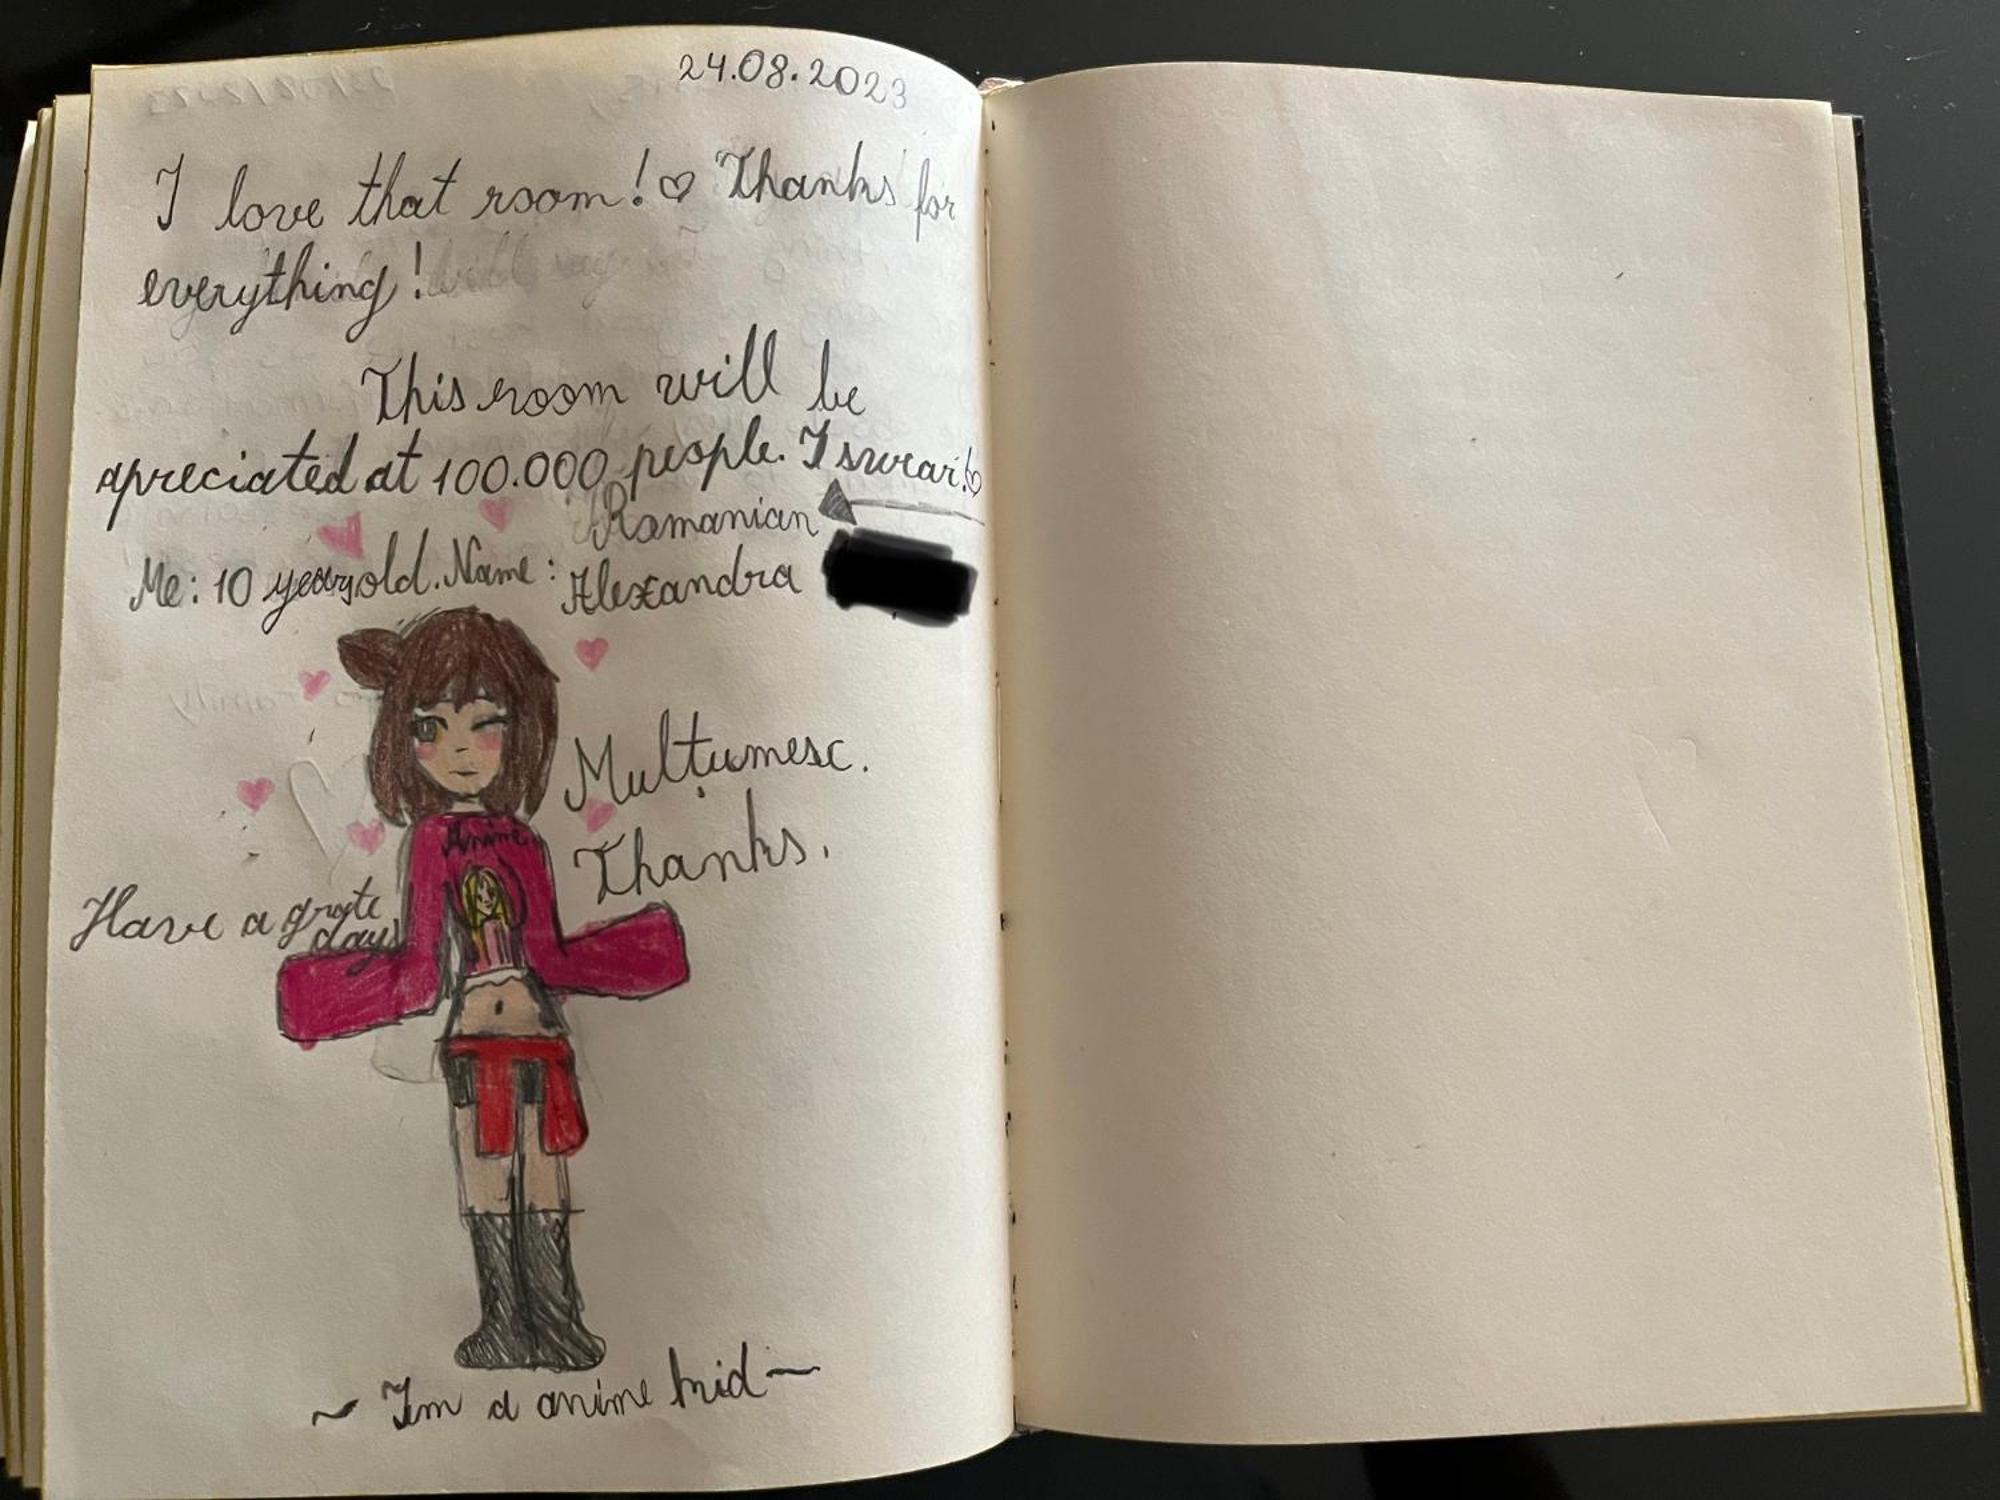 24.08.2023
I love that room! ♡ Thanks for
everything!
This room will be
apreciated at 100.000 people. I swear! ♡
Romanian
Me: 10 years old. Name: Alexandra
Mulțumesc.
Thanks.
Anime
Have a grate
day
~ Im a anime kid ~